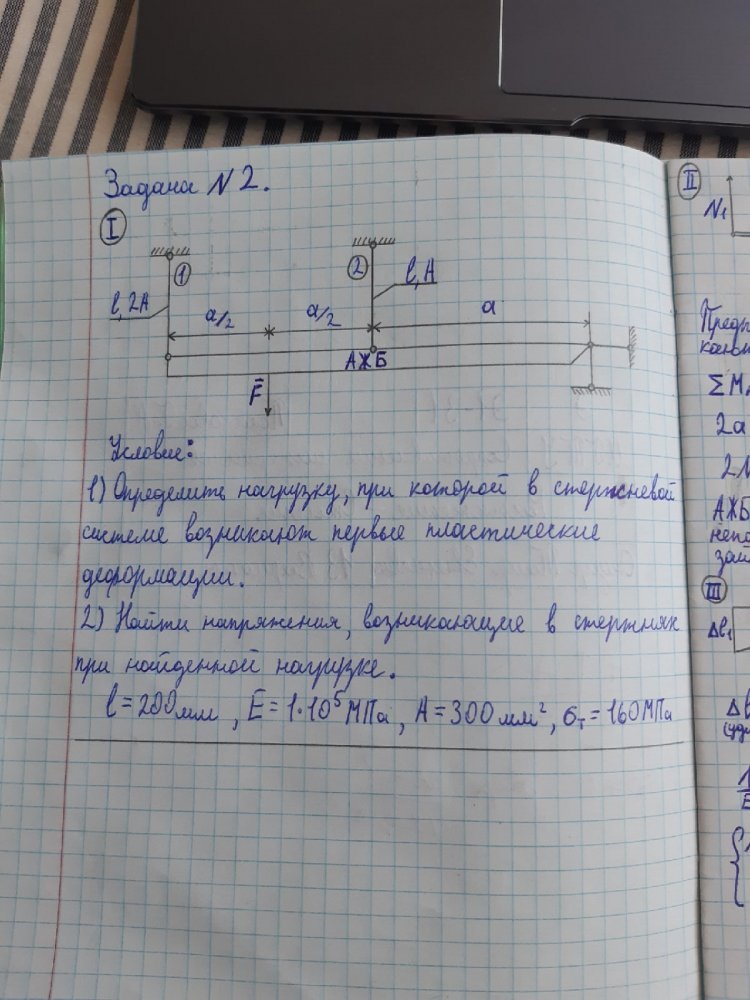 Задача N2.
I
1
2
l, 2A
l, A
a/2
a/2
a
АЖБ
F
Условие:
1) Определить нагрузку, при которой в стержневой
системе возникают первые пластические
деформации.
2) Найти напряжения, возникающие в стержнях
при найденной нагрузке.
l=200мм, E=1·10⁵МПа, A=300мм², σт=160МПа
II
N₁
ΣM
2a
2N
АЖБ
III
Δl₁